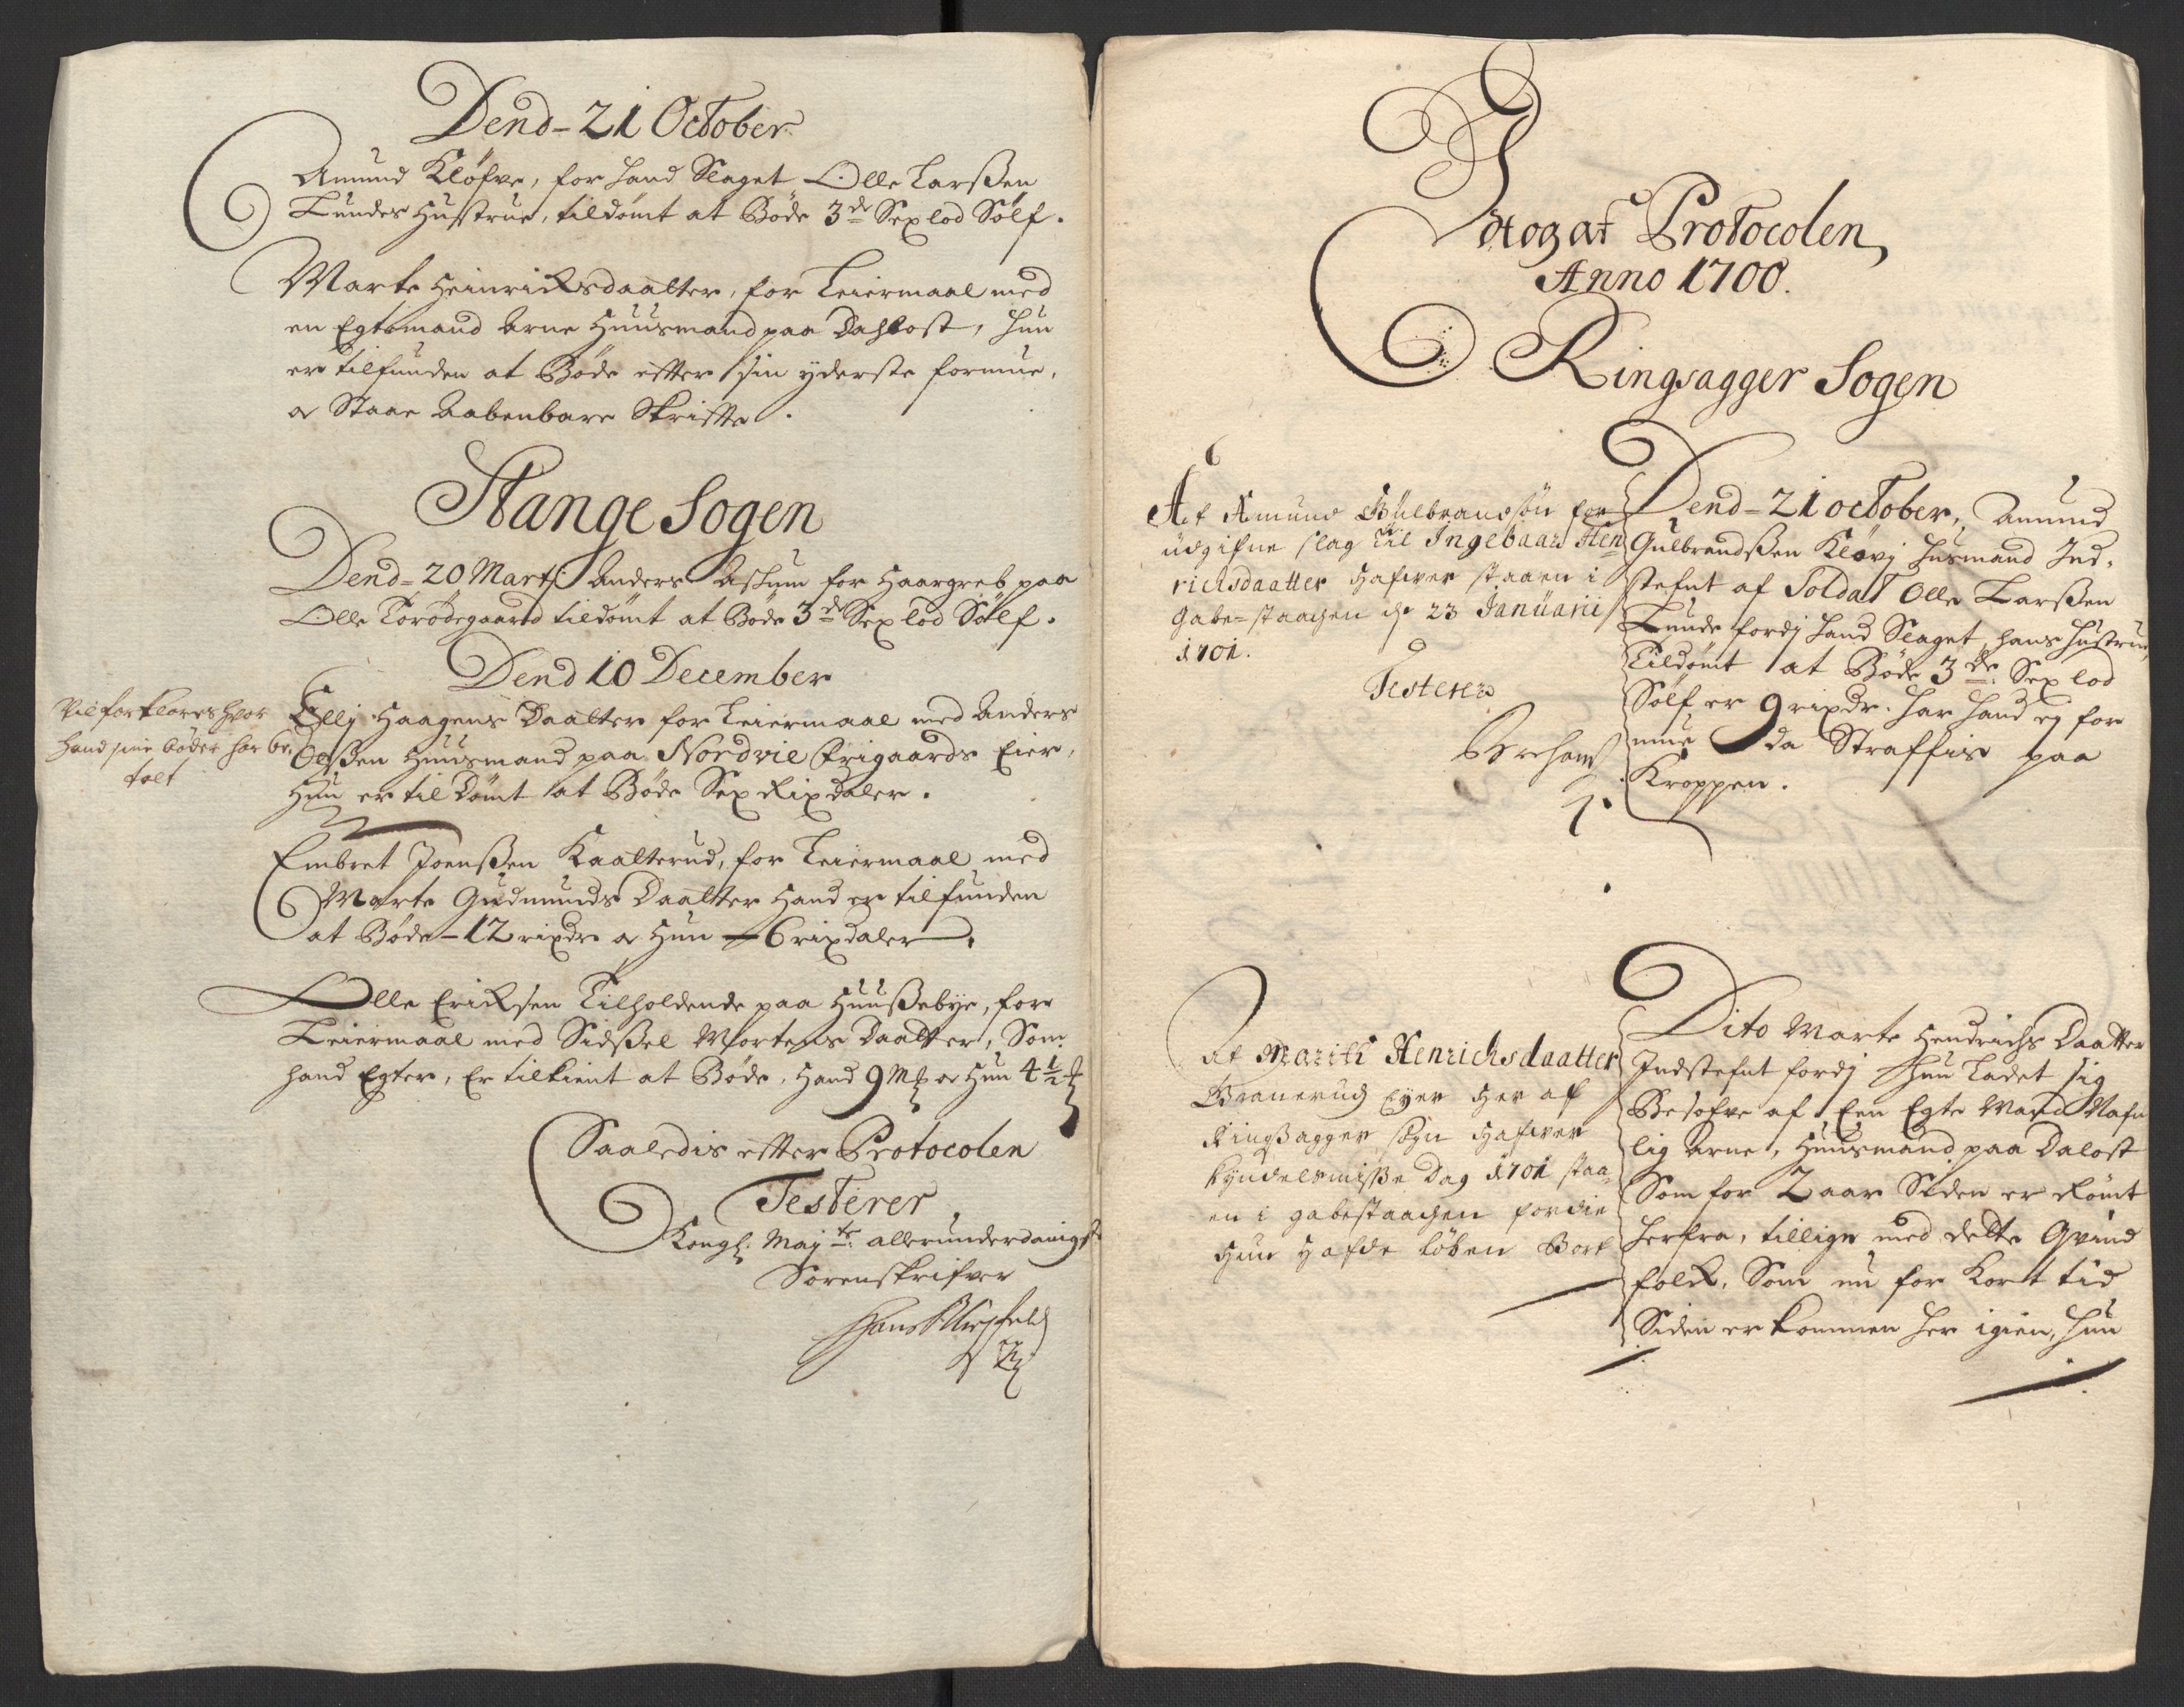 Dend - 21 October
Amund Kløfve, for hand Slaget Olle Larßen
Lundes Hustrue, tildømt at Bøde 3de Sex lod Sølf.
Marte Heinricksdaatter, for Leiermaal med
en Egtemand Arne Huusmand paa Dahlost, hun
er tilfunden at Bøde efter sin yderste formue,
og Staae Aabenbare Skrifte.
Stange Sogen
Dend = 20 Martj Anders Askum for Haargreb paa
Olle Torødegaard tildømt at Bøde 3de Sex lod Sølf.
Dend 10 December
Vil forklares hvor
hand sine bøder har be-
talt
Ellj Haagens Daatter for Leiermaal med Anders
Olßen Huusmand paa Nordvie Prigaards Eier,
Hun er til dømt at Bøde Sex Rixdaler.
Embret Joenßen Kaalterud, for Leiermaal med
Marte Gudmunds Daatter Hand er tilfunden
at Bøde - 12 rixdr og Hun - 6 rixdaler.
Olle Ericksen Tilholdende paa Huußebye, for
Leiermaal med Sidßel Mortens Daatter, Som
hand Egter, Er tilkient at Bøde, Hand 9 Mk og Hun 4½ Mk
Saaledis efter Protocolen
Testerer
Kongl: May:ts allerunderdanigst
Sorenskrifver
Udtog af Protocolen
Anno 1700.
Ringsagger Sogen
At Amund Gulbrandsøn for
udgifne slag til Ingebaar Hen
richsdaatter hafver staaen i
Gabe-staachen d 23 Januarii
1701.
Testerer
Dend - 21 october, Amund
Gulbrandßen Kløvj Husmand Ind-
stefnt af Soldat Olle Larßen
Lunde fordj hand Slaget hans Hustrue,
Tildømt at Bøde 3de Sex lod
Sølf er 9 rixdr. har hand ej for
mue da Straffis paa
Kroppen.
At Marith Henrichsdaatter
Granerud Eyer her af
Ringsagger sogn hafver
Kyndelsmisse dag 1701 staa
en i gabestaachen fordie
hun hafde løben Bort
Dito Marte Hendrichs Daatter
Indstefnt fordj Hun ladet sig
Besofve af Een Egte Mand Nafn
lig Arne, Huusmand paa Dalost
Som for 2 aar Siden er Rømt
herfra, tillige med dette Qvind
folck, Som nu for kort tid
Siden er kommen her igien, hun